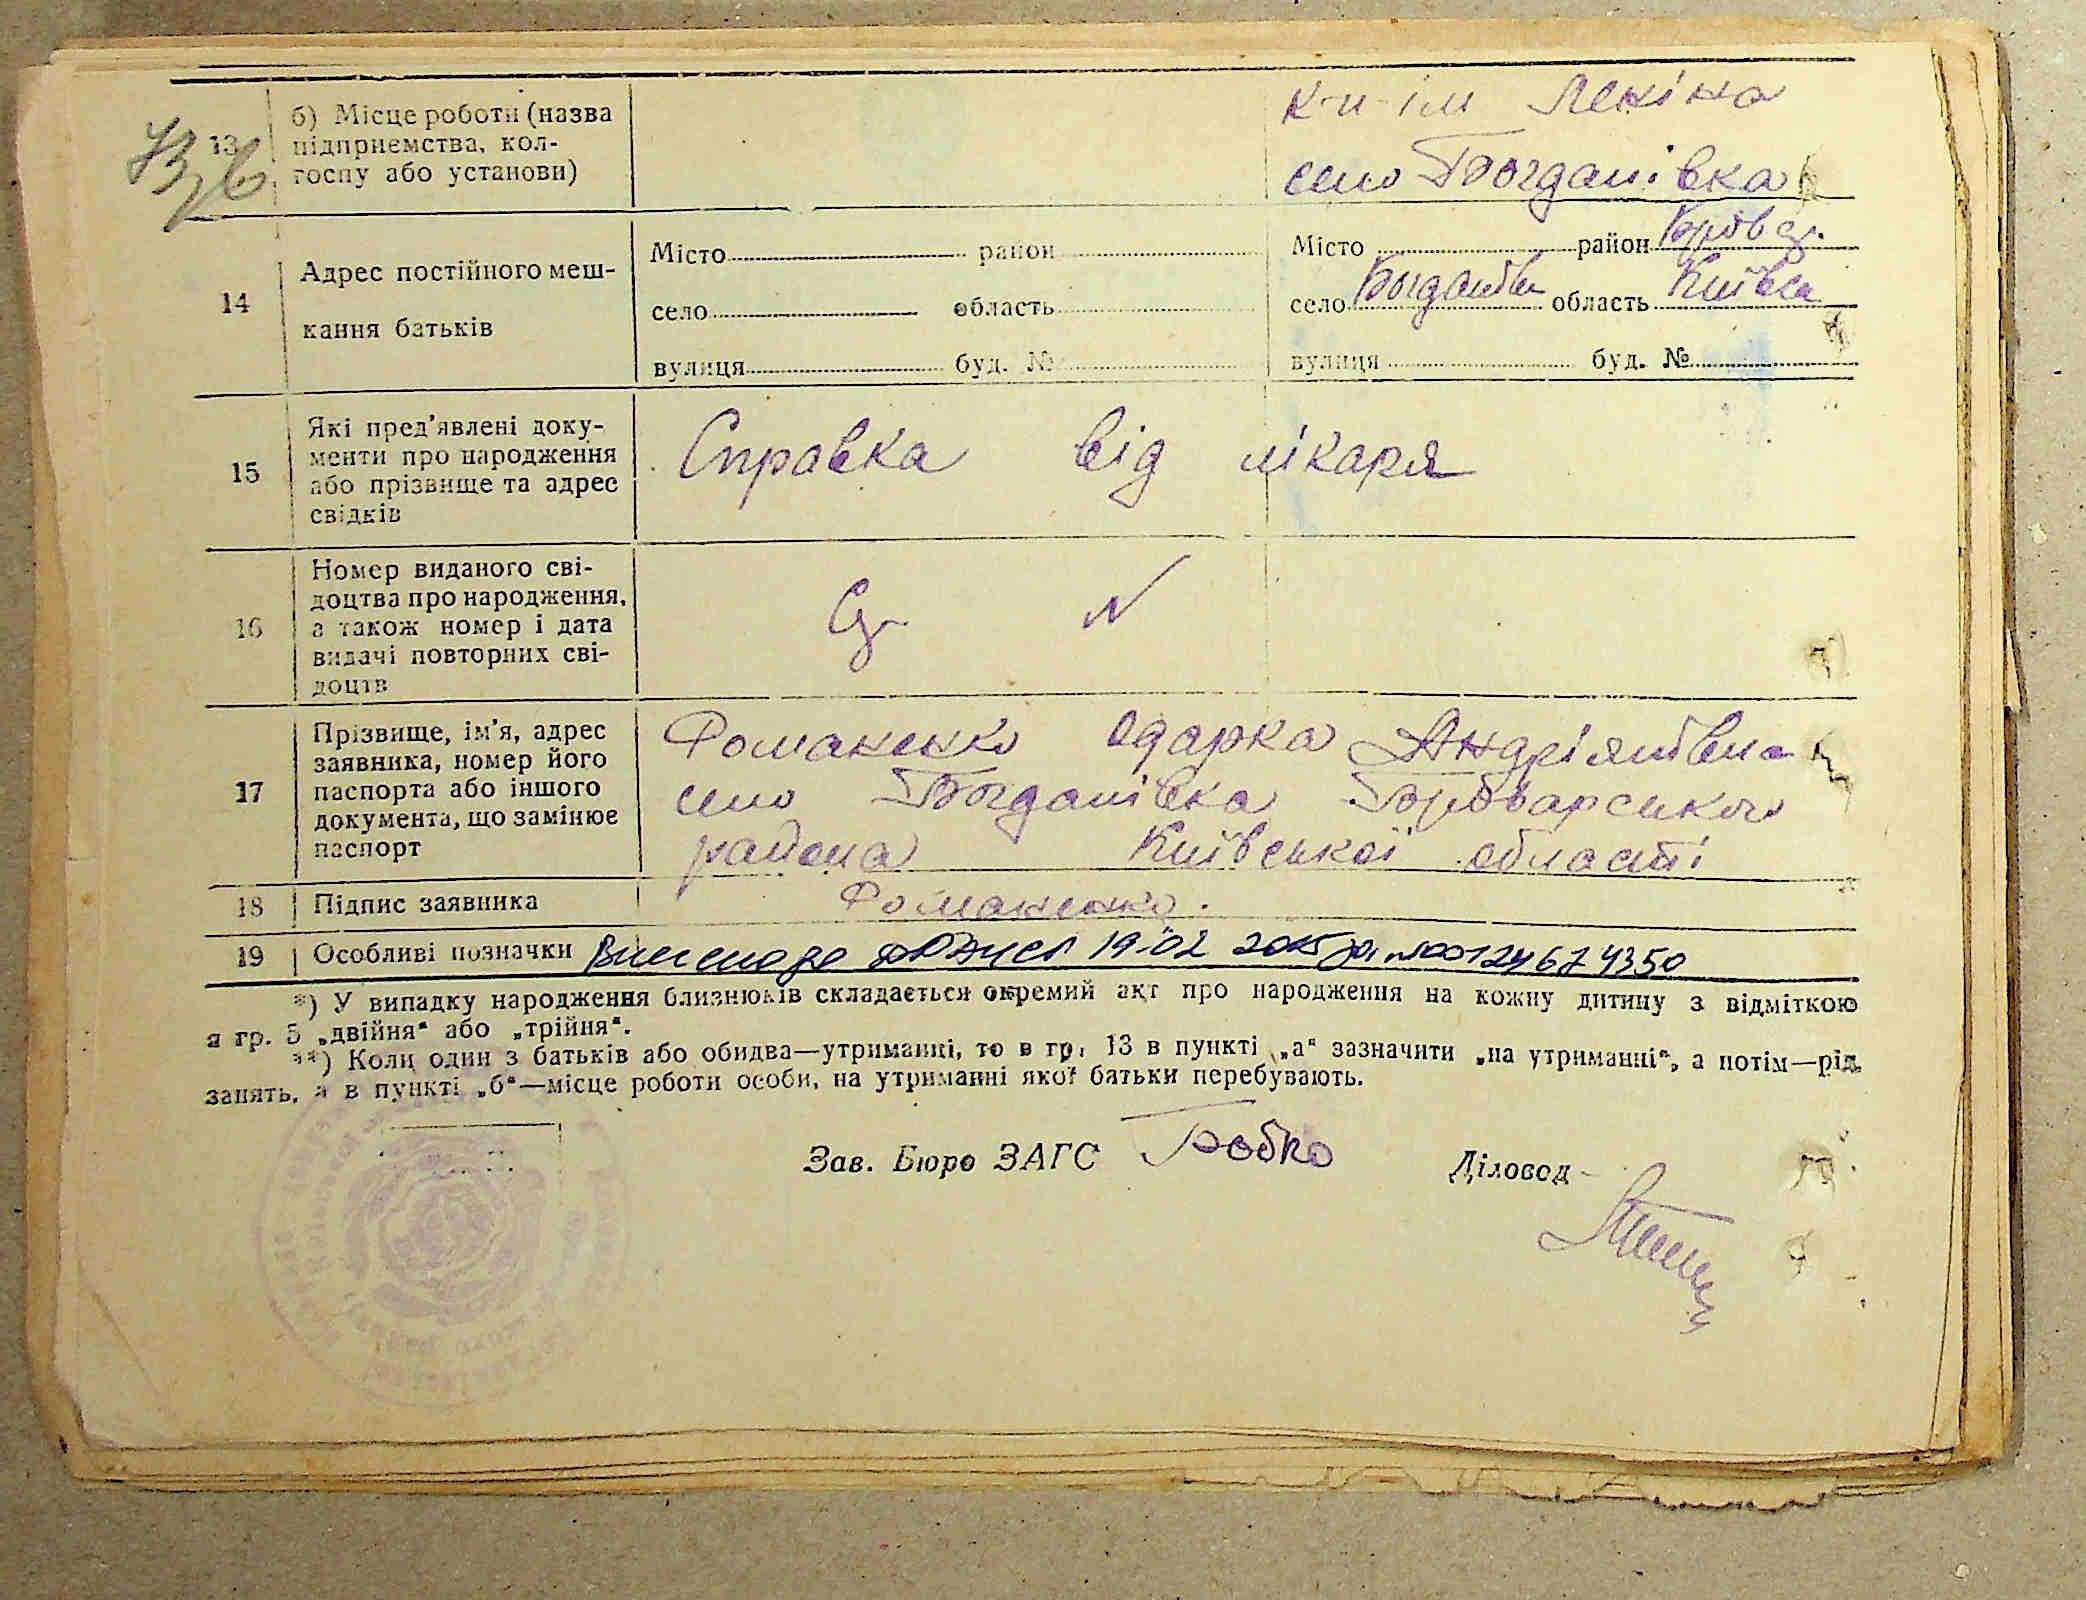 к-п ім Леніна
13 б) Місце роботи (назва
підприємства, кол-
госпу або установи)
село Богданівка
14 Адрес постійного меш-
кання батьків
Місто район
село область
вулиця буд. №
Місто район Бров
село Богданівк область Київськ
вулиця буд. №
15 Які пред'явлені доку-
менти про народження
або прізвище та адрес
свідків
Справка від лікаря
16 Номер виданого сві-
доцтва про народження,
а також номер і дата
видачі повторних сві-
доцтв
N
17 Прізвище, ім'я, адрес
заявника, номер його
паспорта або іншого
документа, що замінює
паспорт
Романенко Одарка Андріянівна
село Богданівка Броварського
района Київської області
18 Підпис заявника Романенко.
19 Особливі позначки 19.02 2015 00124674350
*) У випадку народження близнюків складається окремий акт про народження на кожну дитину з відміткою
в гр. 5 „двійня“ або „трійня“.
**) Коли один з батьків або обидва—утриманці, то в гр. 13 в пункті „а“ зазначити „на утриманні“, а потім—рід
занять, а в пункті „б“—місце роботи особи, на утриманні якої батьки перебувають.
Зав. Бюро ЗАГС
Діловод